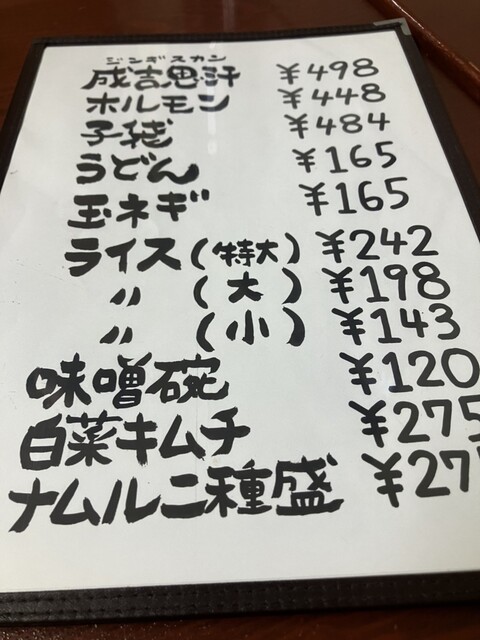 ジンギスカン
成吉思汗 ¥498
ホルモン ¥448
子袋 ¥484
うどん ¥165
玉ネギ ¥165
ライス(特大) ¥242
〃 (大) ¥198
〃 (小) ¥143
味噌碗 ¥120
白菜キムチ ¥275
ナムル二種盛 ¥27